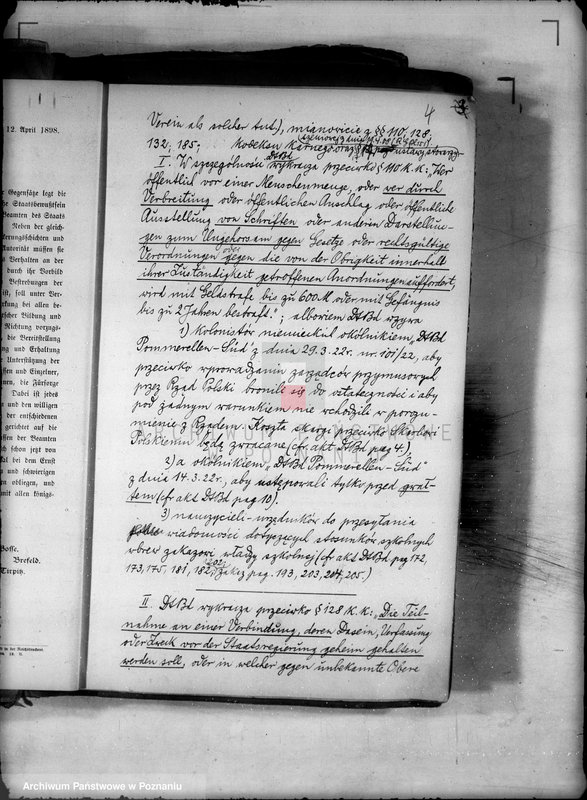 12. April 1898.
Gegensätze legt die
Staatsbewußtsein
Beamten des Staats
Neben der gleich-
Autorität müssen sie
Verhalten an der
durch ihr Vorbild
Bestrebungen der
ist, soll unter Ver-
bei allen be-
Bildung und
Richtung vorzugs-
die Bereitstellung
und Erhaltung
Unterstützung der
und Einzelner,
die Fürsorge
Dabei ist jedes
und den willigen
der entschiedenen
gerichtet auf die
der Beamten
schon jetzt von
bei dem Ernst
und schwierigen
obliegen, und
mit allen königs-
Bosse.
Brefeld.
Tirpitz.
4
Verein als solcher tut), mianowicie z §§ 110, 128
132, 185, kodeksu karnego oraz § ustawy o stowarz.
I. W szczególności DtBd wykracza przeciwko § 110 K.K.: „Wer
öffentlich vor einer Menschenmenge, oder wer durch
Verbreitung oder öffentlichen Anschlag oder öffentliche
Ausstellung von Schriften oder anderen Darstellun-
gen zum Ungehorsam gegen Gesetze oder rechtsgültige
Verordnungen oder gegen die von der Obrigkeit innerhalb
ihrer Zuständigkeit getroffenen Anordnungen auffordert,
wird mit Geldstrafe bis zu 600 M oder mit Gefängnis
bis zu 2 Jahren bestraft"; albowiem DtBd wzywa
1) kolonistów niemieckich okólnikiem „DtBd
Pommerellen-Süd" z dnia 29.3.22r. nr. 101/22, aby
przeciwko wprowadzaniu zarządców przymusowych
przez Rząd Polski bronili się do ostateczności i aby
pod żadnym warunkiem nie wchodzili w porozu-
mienie z Rządem. Koszta skargi przeciwko Skarbowi
Polskiemu będą zwracane (cf. akt DtBd pag 4.)
2) a okólnikiem „DtBd Pommerellen-Süd"
z dnia 14.3.22r., aby ustępowali tylko przed gwał-
tem (cf. akt DtBd pag 10).
3) nauczycieli-urzędników do przesyłania
wiadomości dotyczących stosunków szkolnych
wbrew zakazowi władzy szkolnej (cf. akt DtBd pag 172,
173, 175, 181, 182, 202, pag. 193, 203, 204, 205.)
II. DtBd wykracza przeciwko § 128 K.K.: „Die Teil-
nahme an einer Verbindung, deren Dasein, Verfassung
oder Zweck vor der Staatsregierung geheim gehalten
werden soll, oder in welcher gegen unbekannte Obere
ARCHIWUM PAŃSTWOWE
W POZNANIU
Archiwum Państwowe w Poznaniu